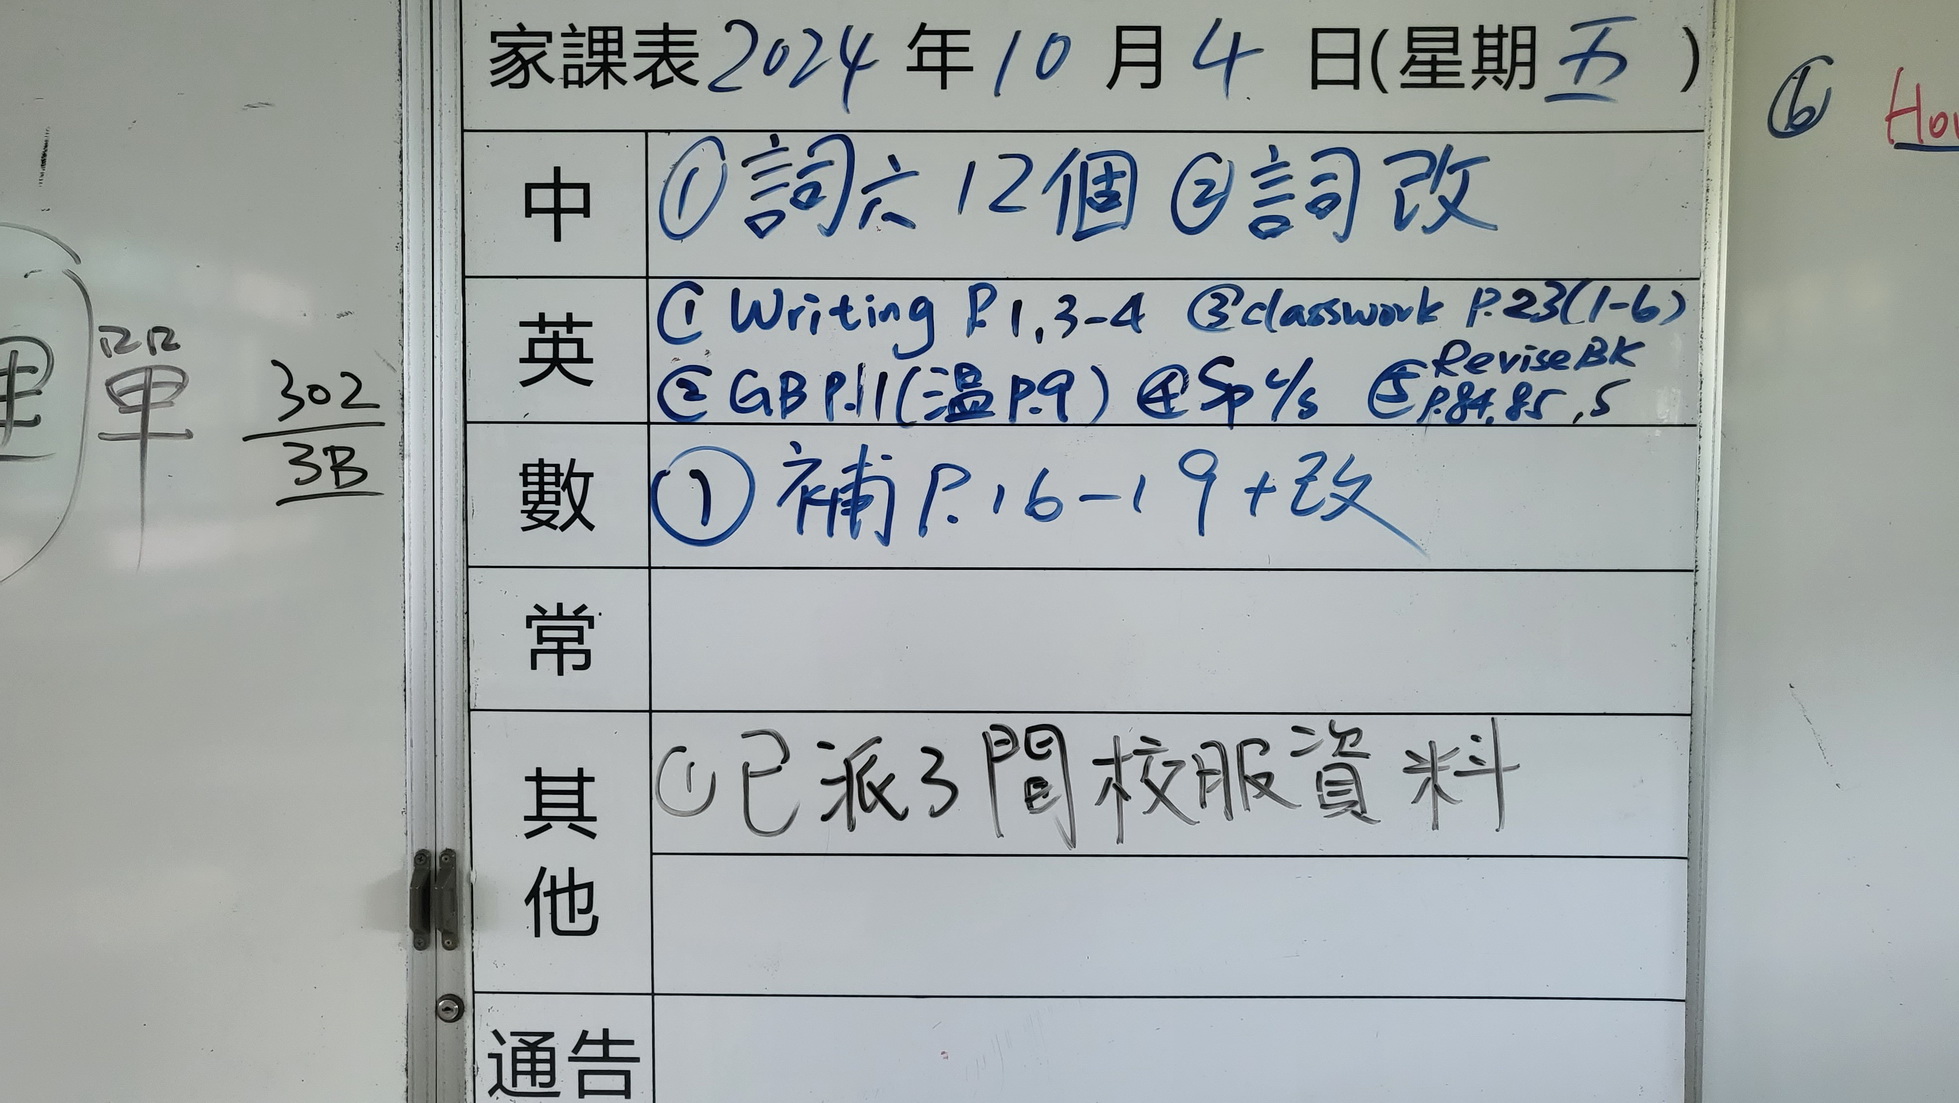 家課表 2024 年 10 月 4 日(星期 五 )
中 ① 詞六 12個 ② 詞改
英 ① Writing P.1,3-4 ③ classwork P.23(1-6)
② GB P.11(溫P.9) ④ Sp c/s ⑤ Revise BK
P.84,85,5
數 ① 補 P.16-19+改
常
其他 ① 已派3間校服資料
通告
單
302
3B
⑥